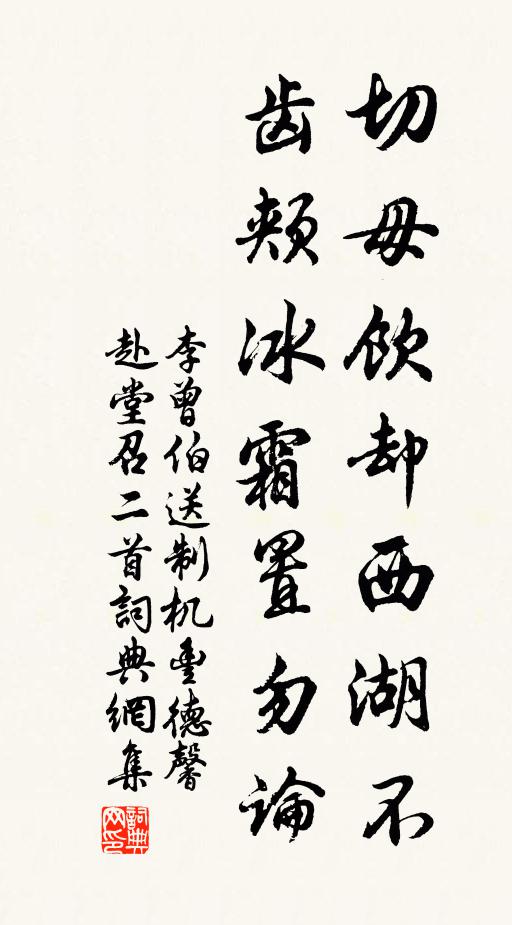 切毋飲却西湖不
齿頰冰霜置勿論
李曾伯送制机豊德馨
赴堂召二首詞典網集
詞典网印